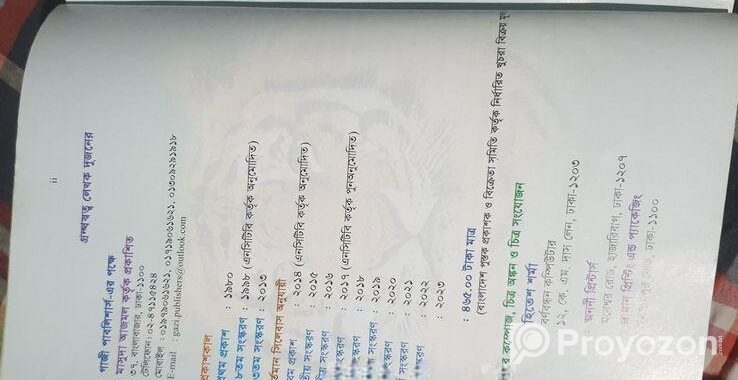 ii
গ্রন্থস্বত্ব লেখক দুজনের
গাজী পাবলিশার্স-এর পক্ষে
মাসুদা আজমল কর্তৃক প্রকাশিত
৩৭, বাংলাবাজার, ঢাকা-১১০০
টেলিফোন : ০২-৪৭১১৫৪২৪
মোবাইল : ০১৯১৯০৬১৬২১, ০১৭১৯০৬১৬২১, ০১৩০৯২৯১৯১৮
E-mail : gazi.publishers@outlook.com
প্রকাশকাল
প্রথম প্রকাশ : ১৯৮০
সংস্করণ : ১৯৯৮ (এনসিটিবি কর্তৃক অনুমোদিত)
সংস্করণ : ২০১৩
বর্তমান সিলেবাস অনুযায়ী
প্রথম প্রকাশ : ২০১৪ (এনসিটিবি কর্তৃক অনুমোদিত)
সংস্করণ : ২০১৫
সংস্করণ : ২০১৬
সংস্করণ : ২০১৭ (এনসিটিবি কর্তৃক পুনঅনুমোদিত)
সংস্করণ : ২০১৮
সংস্করণ : ২০১৯
সংস্করণ : ২০২০
সংস্করণ : ২০২১
: ২০২২
: ২০২৩
: ৪৬৫.০০ টাকা মাত্র
(বাংলাদেশ পুস্তক প্রকাশক ও বিক্রেতা সমিতি কর্তৃক নির্ধারিত খুচরা বিক্রয়
কম্পোজ, চিত্র অঙ্কন ও চিত্র সংযোজন
হিতেশ শর্মা
কম্পিউটার
১২, কে. এম. দাস লেন, ঢাকা-১২০৩
জননী প্রিন্টার্স
রোড, হাজারিবাগ, ঢাকা-১২০৭
প্রিন্টিং এন্ড প্যাকেজিং
রোড, ঢাকা-১১০০
Provozon